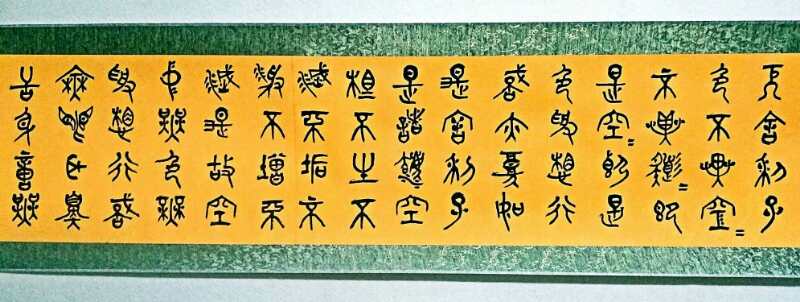 厄舍利子
色不異空=
不異色=即
是空=即是
色受想行
識亦復如
是舍利子
是諸法空
相不生不
滅不垢不
淨不增不
減是故空
中無色無
受想行識
無眼耳鼻
舌身意無